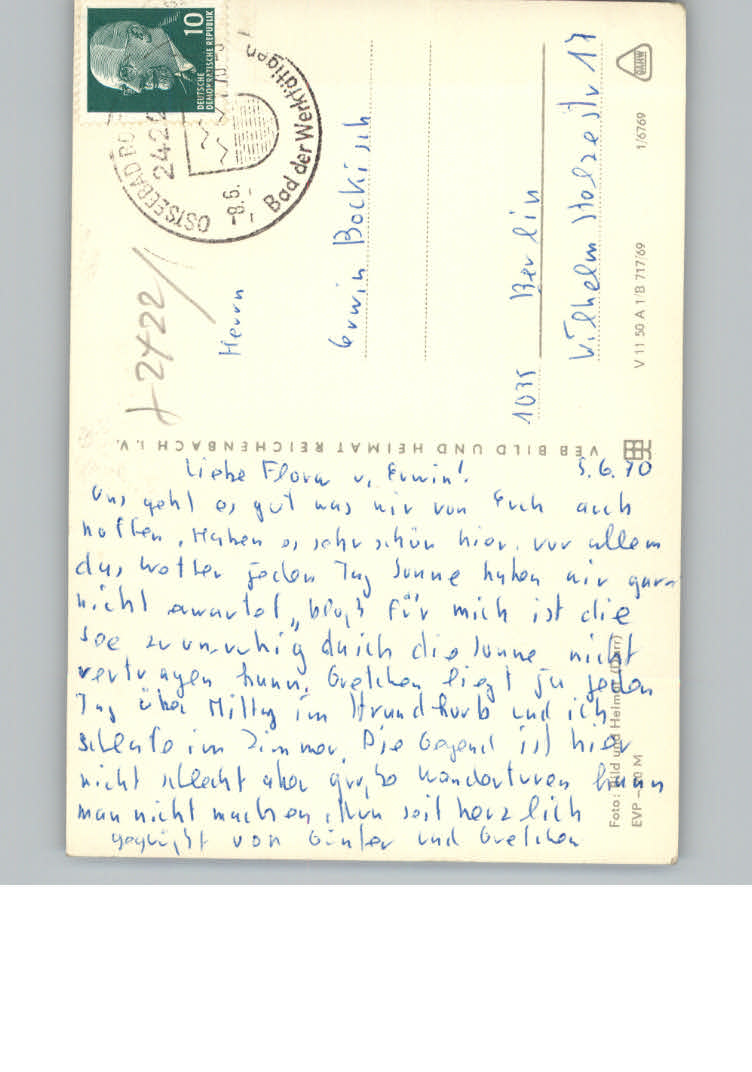 10
DEUTSCHE
DEMOKRATISCHE REPUBLIK
OSTSEEBAD
2422
-8.6.
Bad der Werktätigen
+2422/
Herrn
Erwin Bockisch
1035 Berlin
Wilhelm Stolzestr 17
V 11 50 A 1/B 717/69
1/6769
VEB BILD UND HEIMAT REICHENBACH I. V.
Foto: Bild und Heimat (Darr)
EVP – M
5.6.70
Liebe Flora u, Erwin!
Uns geht es gut was wir von Euch auch
hoffen. Haben es sehr schön hier. vor allem
das Wetter jeden Tag Sonne haben wir garn
nicht erwartet, bloß für mich ist die
See zu unruhig durch die Sonne nicht
vertragen kann. Gretchen liegt ja jeden
Tag über Mittag im Strandkorb und ich
schlafe im Zimmer. Die Gegend ist hier
nicht schlecht aber große Wanderturen kann
man nicht machen. Nun seit herzlich
gegrüßt von Günter und Gretchen